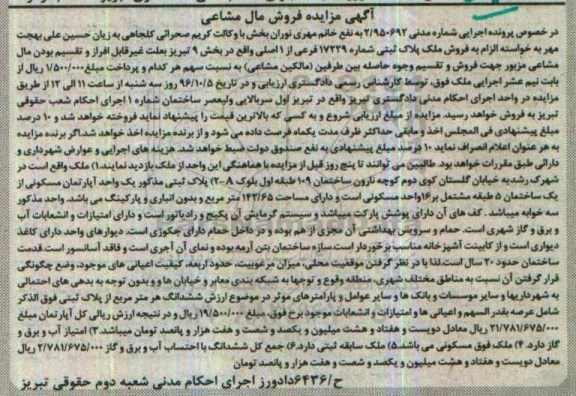 آگهی مزایده فروش مال مشاعی
در خصوص پرونده اجرایی شماره مدنی ۲/۹۵۰۶۹۲ به نفع خانم مهری نوران بخش با وکالت کریم صحرائی کلجاهی به زیان حسین علی بهجت
مهر به خواسته الزام به فروش ملک پلاک ثبتی شماره ۱۷۲۲۹ فرعی از ۱ اصلی واقع در بخش ۹ تبریز بعلت غیرقابل افراز و تقسیم بودن مال
مشاعی مزبور جهت فروش و تقسیم وجوه حاصله بین طرفین (مالکین مشاعی) به نسبت سهم هر کدام و پرداخت مبلغ ۱/۵۰۰/۰۰۰ ریال از
بابت نیم عشر اجرایی ملک فوق، توسط کارشناس رسمی دادگستری ارزیابی و در تاریخ ۹۶/۱۰/۵ روز سه شنبه از ساعت ۱۱ الی ۱۲ از طریق
مزایده در واحد اجرای احکام مدنی دادگستری تبریز واقع در تبریز اول سربالایی ولیعصر ساختمان شماره ۱ اجرای احکام شعب حقوقی
تبریز به فروش خواهد رسید. مزایده از مبلغ ارزیابی شروع و به کسی که بالاترین قیمت را پیشنهاد نماید فروخته خواهد شد و ۱۰ درصد
مبلغ پیشنهادی فی المجلس اخذ و مابقی حداکثر ظرف مدت یکماه فرصت داده می شود و از برنده مزایده اخذ خواهد شد. اگر برنده مزایده
به هر عنوان اعلام انصراف نماید ۱۰ درصد مبلغ پیشنهادی به نفع صندوق دولت ضبط خواهد شد. هزینه های اجرایی و عوارض شهرداری و
دارائی طبق مقررات خواهد بود. طالبین می توانند تا پنج روز قبل از مزایده با هماهنگی این واحد از ملک بازدید نمایند. ۱) ملک واقع است در
شهرک رشدیه خیابان گلستان کوی دوم کوچه نارون ساختمان ۱۰۹ طبقه اول بلوک ۸ـ ۲) پلاک ثبتی مذکور یک واحد آپارتمان مسکونی از
یک ساختمان ۵ طبقه مشتمل بر ۱۶ واحد مسکونی است و دارای مساحت ۱۴۲/۶۵ متر مربع و بدون انباری و پارکینگ می باشد. واحد مذکور
سه خوابه میباشد. کف های آن دارای پوشش پارکت میباشد و سیستم گرمایش آن پکیج و رادیاتور است و دارای امتیازات و انشعابات آب
و برق و گاز شهری است. حمام و سرویس بهداشتی آن مجزی از هم بوده و در داخل حمام دارای جکوزی است. دیوارهای واحد دارای کاغذ
دیواری است و از کابینت آشپزخانه مناسب برخوردار است. سازه ساختمان بتن آرمه بوده و نمای آن آجری است و فاقد آسانسور است. قدمت
ساختمان حدود ۲۰ سال است. لذا با در نظر گرفتن موقعیت محلی، میزان مرغوبیت، حدود اربعه، کیفیت اعیانی های موجود، وضع چگونگی
قرار گرفتن آن نسبت به مناطق مختلف شهری، منطقه وقوع و توجها به شبکه بندی معابر و خیابان ها و و بدون توجه به بدهی های احتمالی
به شهرداریها و سایر موسسات و بانک ها و سایر عوامل و پارامترهای موثر در موضوع ارزش ششدانگ هر متر مربع از پلاک ثبتی فوق الذکر
شامل عرصه بقدر السهم و اعیانی ها و امتیازات و انشعابات موجود برح فوق، مبلغ ۱۹/۵۰۰/۰۰۰ ریال و در نتیجه ارزش ریالی کل آپارتمان مبلغ
۲/۷۸۱/۶۷۵/۰۰۰ ریال معادل دویست و هفتاد و هشت میلیون و یکصد و شصت و هفت هزار و پانصد تومان میباشد. ۳) امتیاز آب و برق و
گاز دارد. ۴) ملک فوق مسکونی می باشد. ۵) ملک سابقه ثبتی دارد. ۶) جمع کل ششدانگ با احتساب آب و برق و گاز ۲/۷۸۱/۶۷۵/۰۰۰ ریال
معادل دویست و هفتاد و هشت میلیون و یکصد و شصت و هفت هزار و پانصد تومان
ح/۶۴۳۶ دادورز اجرای احکام مدنی شعبه دوم حقوقی تبریز